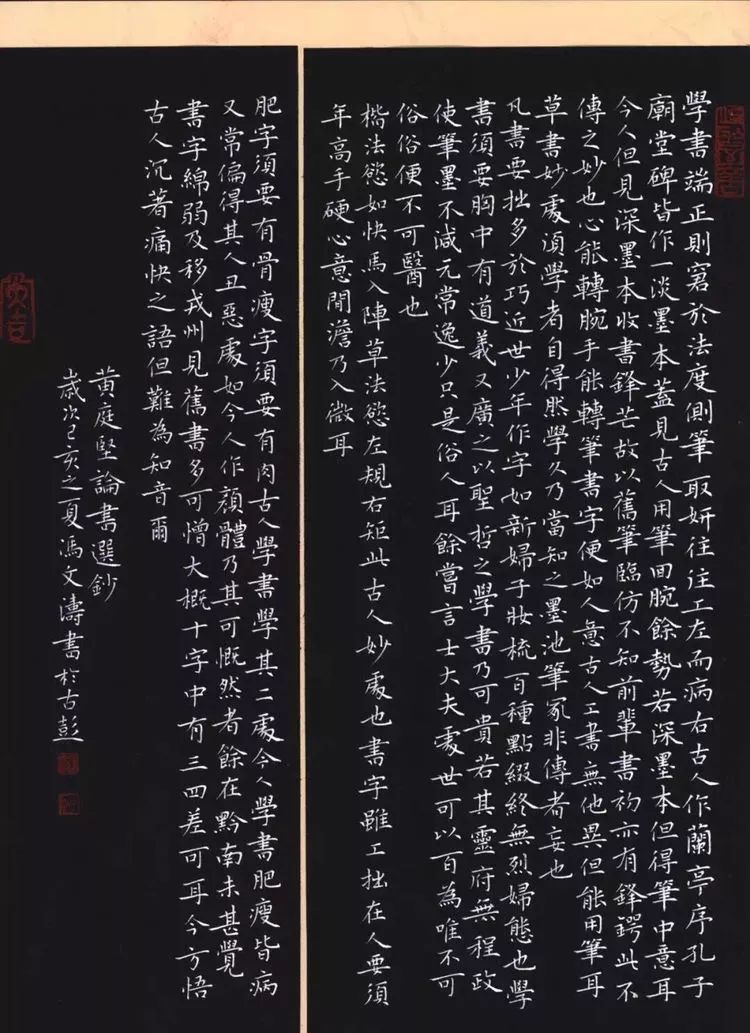 學書端正則窘於法度側筆取妍往往工左而病右古人作蘭亭序孔子
廟堂碑皆作一淡墨本蓋見古人用筆回腕餘勢若深墨本但得筆中意耳
今人但見深墨本收書鋒芒故以舊筆臨仿不知前輩書初亦有鋒鍔此不
傳之妙也心能轉腕手能轉筆書字便如人意古人工書無他異但能用筆耳
草書妙處須學者自得然學久乃當知之墨池筆冢非傳者妄也
凡書要拙多於巧近世少年作字如新婦子妝梳百種點綴終無烈婦態也學
書須要胸中有道義又廣之以聖哲之學書乃可貴若其靈府無程政
使筆墨不減元常逸少只是俗人耳餘嘗言士大夫處世可以百為唯不可
俗俗便不可醫也
楷法慾如快馬入陣草法慾左規右矩此古人妙處也書字雖工拙在人要須
年高手硬心意閒澹乃入微耳
肥字須要有骨瘦字須要有肉古人學書學其二處今人學書肥瘦皆病
又常偏得其人丑惡處如今人作顏體乃其可慨然者餘在黔南未甚覺
書字綿弱及移戎州見舊書多可憎大概十字中有三四差可耳今方悟
古人沉著痛快之語但難為知音爾
黃庭堅論書選鈔
歲次己亥之夏馮文濤書於古彭